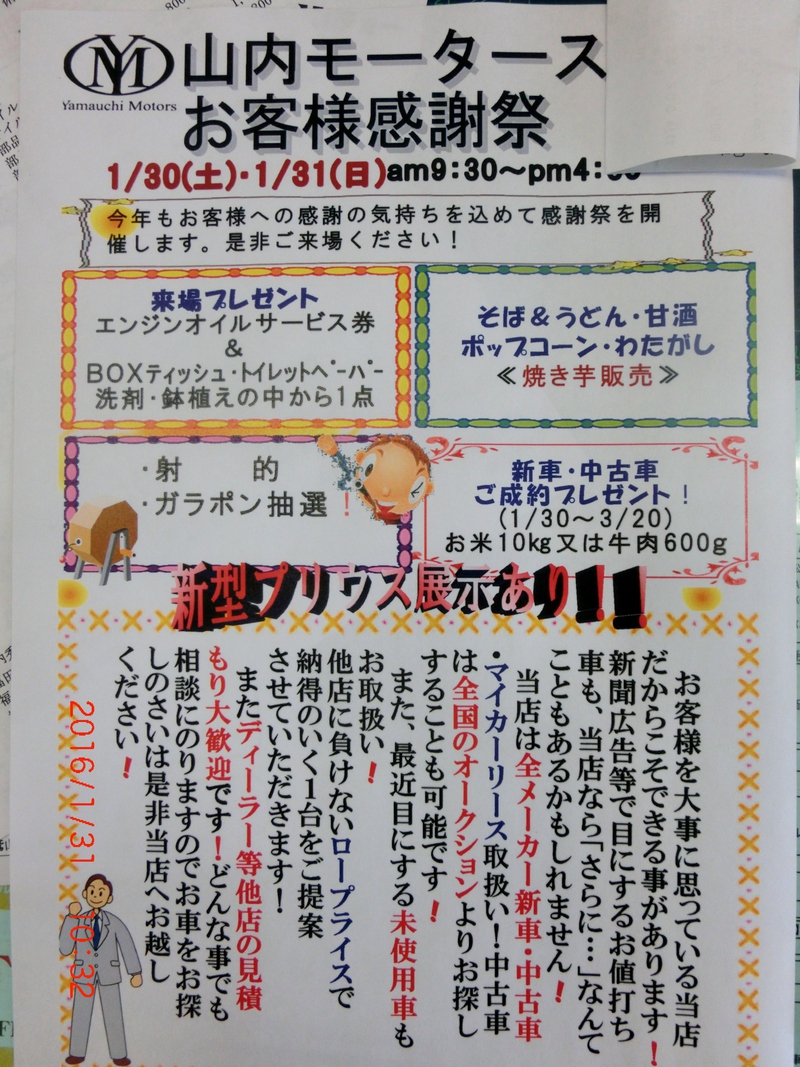 YM
Yamauchi Motors
山内モータース
お客様感謝祭
1/30(土)・1/31(日)am9:30～pm4:
今年もお客様への感謝の気持ちを込めて感謝祭を開
催します。是非ご来場ください！
来場プレゼント
エンジンオイルサービス券
&
BOXティッシュ・トイレットペーパー
洗剤・鉢植えの中から1点
そば＆うどん・甘酒
ポップコーン・わたがし
≪焼き芋販売≫
・射 的
・ガラポン抽選！
新車・中古車
ご成約プレゼント！
(1/30～3/20)
お米10kg又は牛肉600g
新型プリウス展示あり！！
お客様を大事に思っている当店
だからこそできる事があります！
新聞広告等で目にするお値打ち
車も、当店なら「さらに…」なんて
こともあるかもしれません！
当店は全メーカー新車・中古車
・マイカーリース取扱い！中古車
は全国のオークションよりお探し
することも可能です！
また、最近目にする未使用車も
お取扱い！
他店に負けないロープライスで
納得のいく1台をご提案
させていただきます！
またディーラー等他店の見積
もり大歓迎です！どんな事でも
相談にのりますのでお車をお探
しのさいは是非当店へお越し
ください！
2016/1/31 10:32